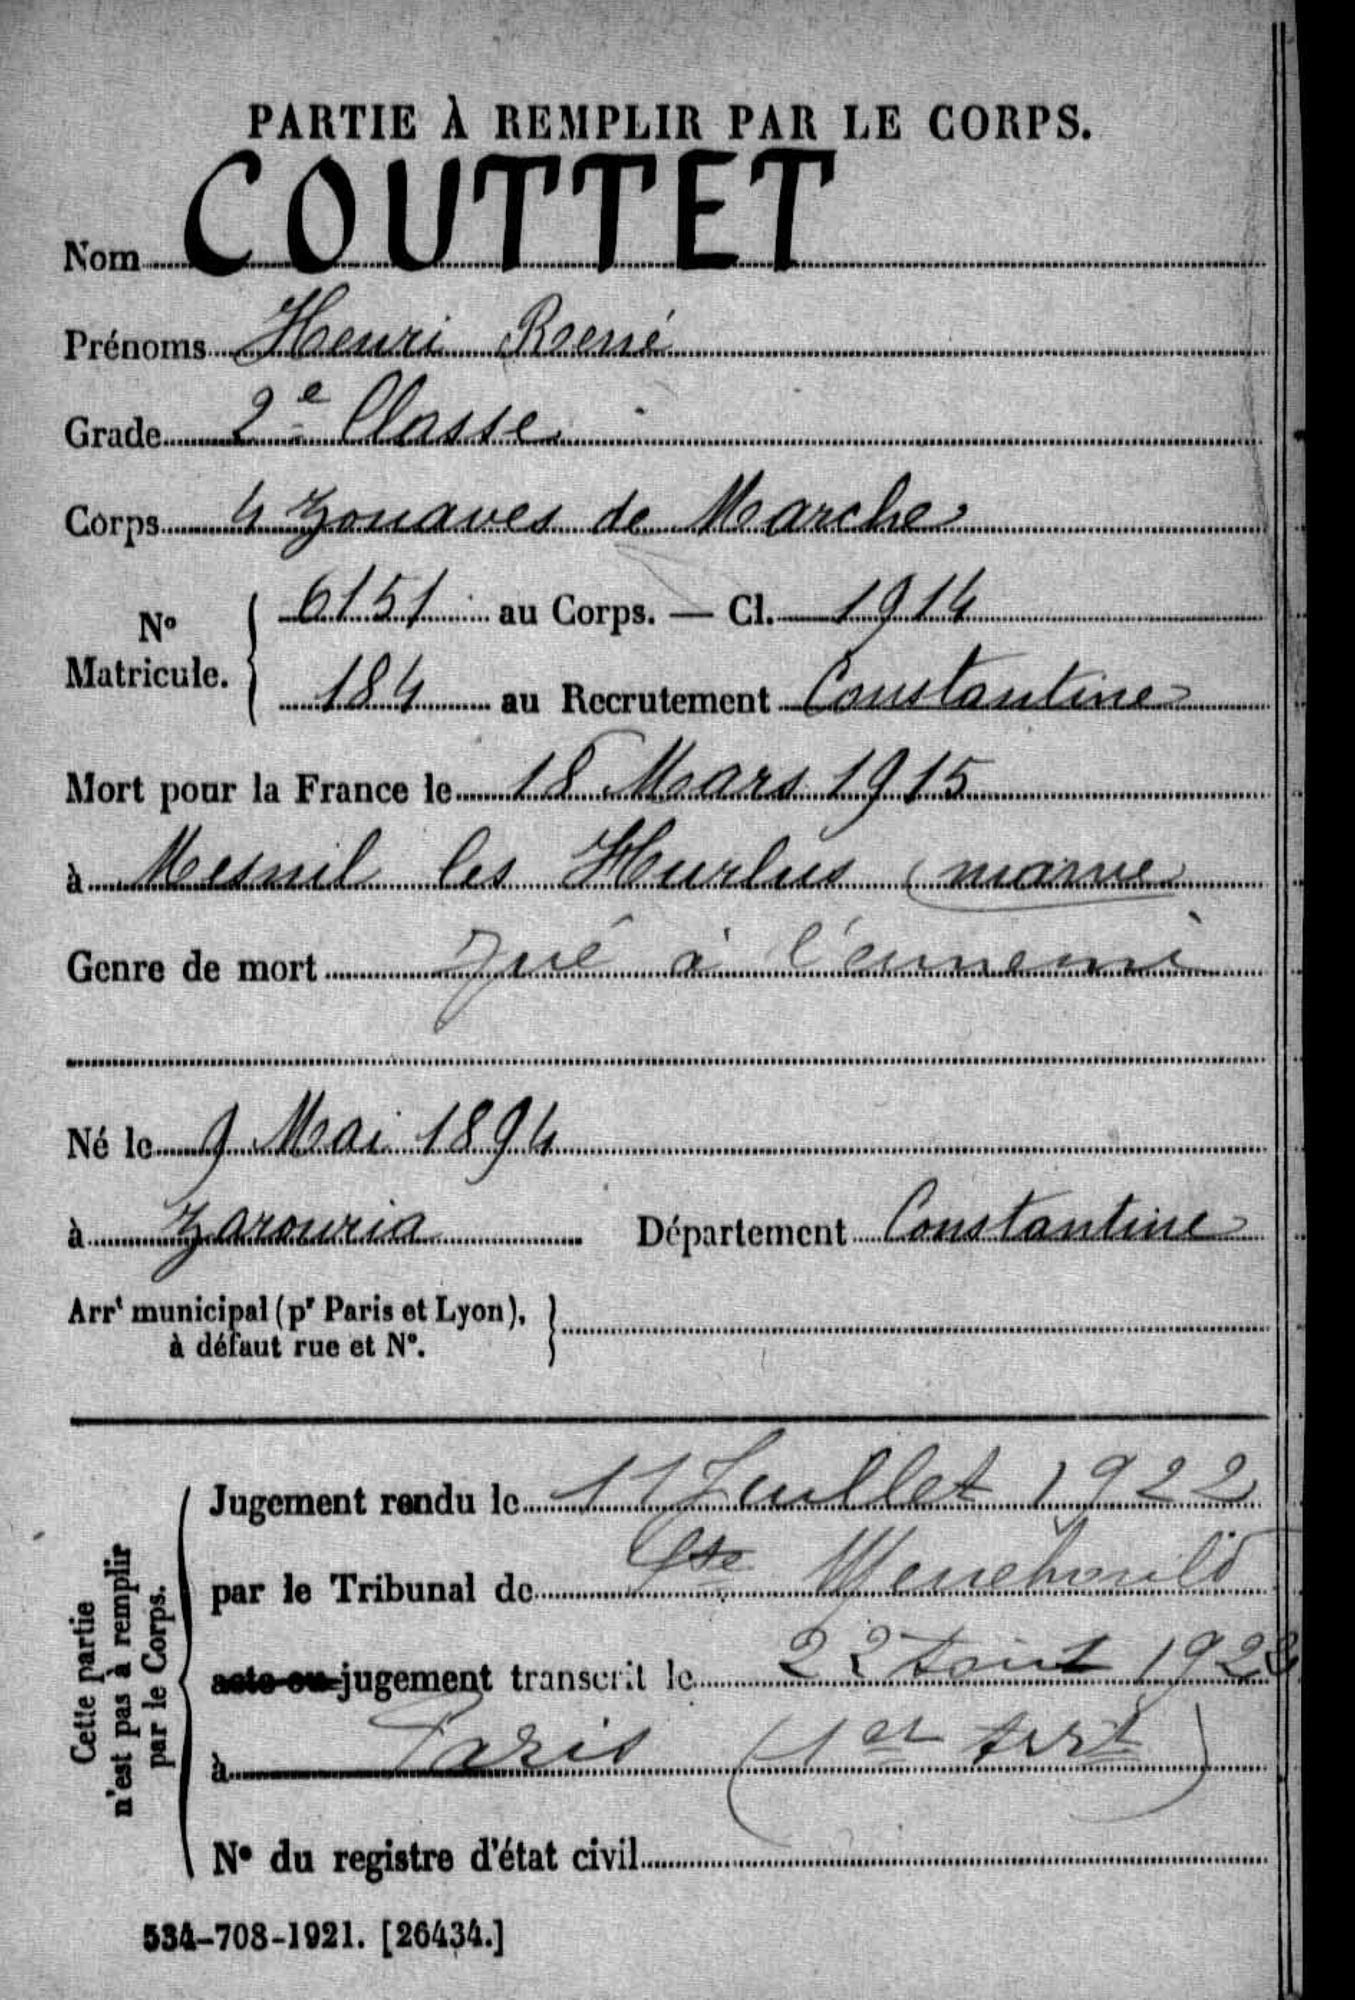 PARTIE À REMPLIR PAR LE CORPS.
Nom COUTTET
Prénoms Henri René
Grade 2e Classe
Corps 4 Zouaves de Marche
No Matricule. { 6151 au Corps. — Cl. 1914
184 au Recrutement Constantine
Mort pour la France le 18 Mars 1915
à Mesnil les Hurlus (marne
Genre de mort Tué à l'ennemi
Né le 9 Mai 1894
à Zarouria Département Constantine
Arrt municipal (pr Paris et Lyon), à défaut rue et No. }
Cette partie n'est pas à remplir par le Corps.
Jugement rendu le 11 Juillet 1922
par le Tribunal de Ste Menehould
acte ou jugement transcrit le 22 Aout
à Paris (1er Arrt)
No du registre d'état civil
534-708-1921. [26434.]